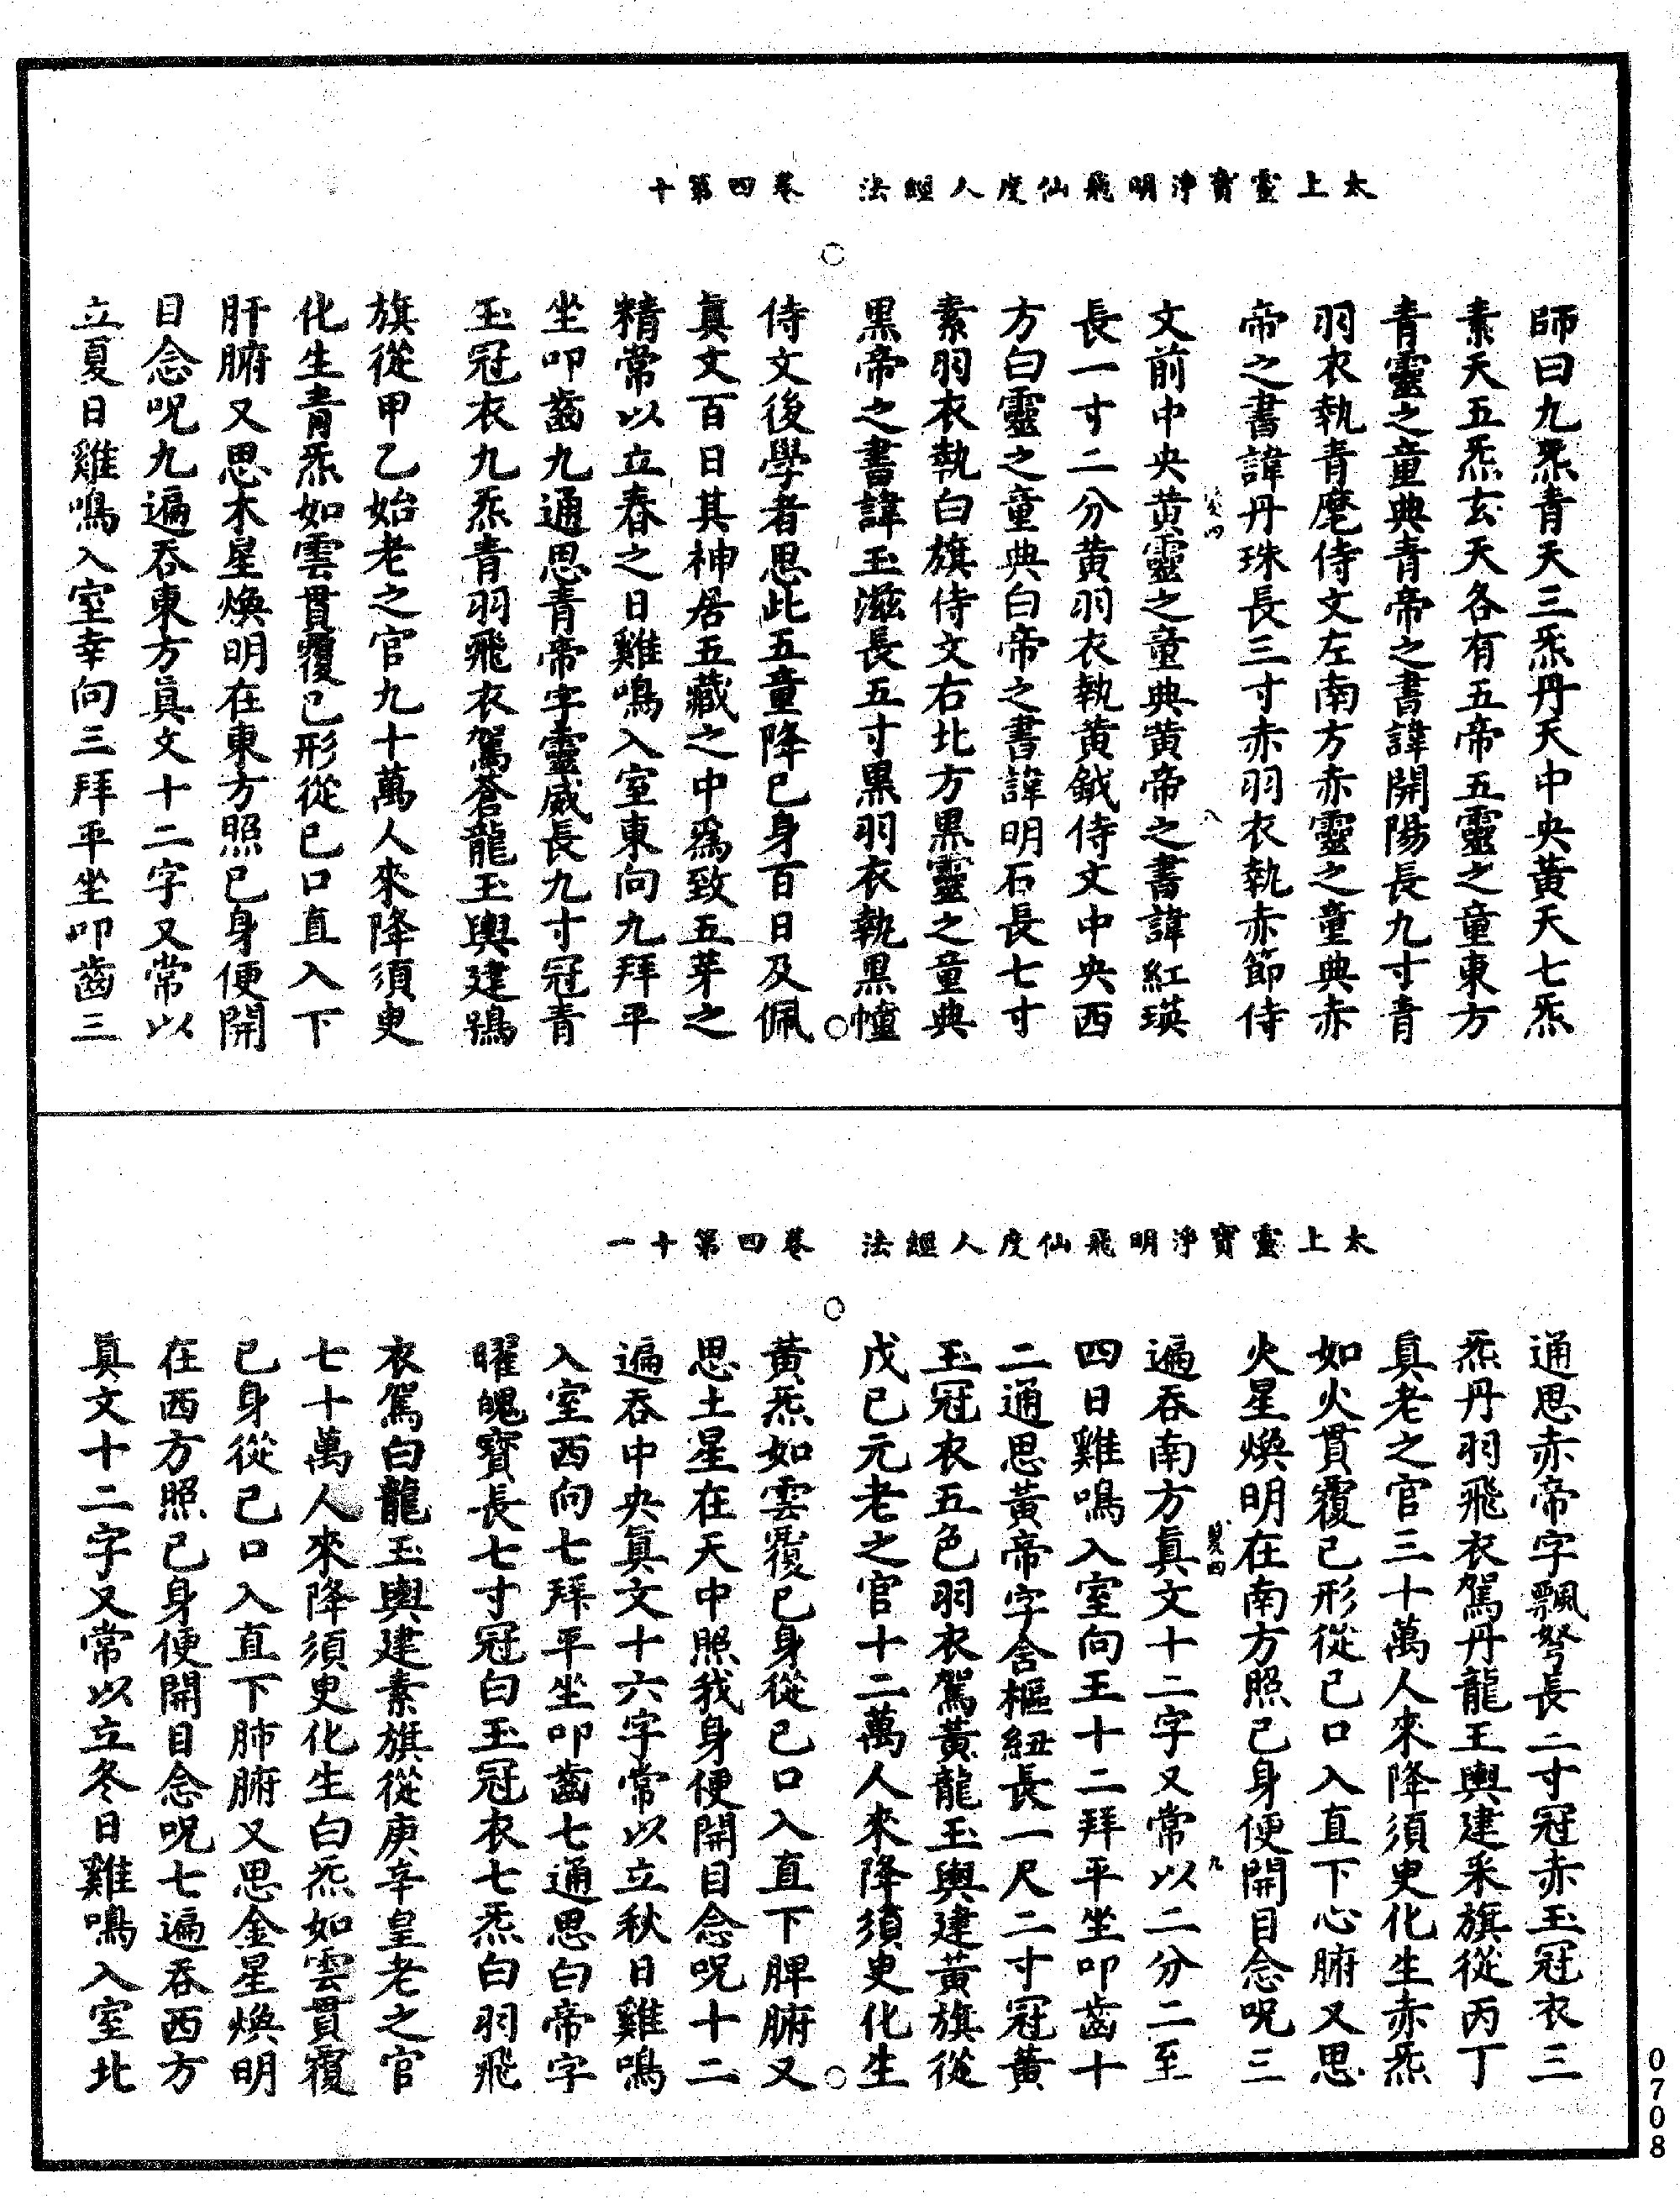 太上靈寶淨明飛仙度人經法　卷四第十
師曰九炁青天三炁丹天中央黃天七炁
素天五炁玄天各有五帝五靈之童東方
青靈之童典青帝之書諱開陽長九寸青
羽衣執青麾侍文左南方赤靈之童典赤
帝之書諱丹珠長三寸赤羽衣執赤節侍
文前中央黃靈之童典黃帝之書諱紅瑛
長一寸二分黃羽衣執黃鉞侍文中央西
方白靈之童典白帝之書諱明石長七寸
素羽衣執白旗侍文右北方黑靈之童典
黑帝之書諱玉滋長五寸黑羽衣執黑幢
侍文後學者思此五童降已身百日及佩
眞文百日其神居五藏之中爲致五芽之
精常以立春之日雞鳴入室東向九拜平
坐叩齒九通思青帝字靈威長九寸冠青
玉冠衣九炁青羽飛衣駕蒼龍玉輿建鶡
旗從甲乙始老之官九十萬人來降須臾
化生青炁如雲貫覆已形從已口直入下
肝腑又思木星煥明在東方照已身便開
目念呪九遍吞東方眞文十二字又常以
立夏日雞鳴入室幸向三拜平坐叩齒三
太上靈寶淨明飛仙度人經法　卷四第十一
通思赤帝字飄弩長二寸冠赤玉冠衣三
炁丹羽飛衣駕丹龍玉輿建朱旗從丙丁
眞老之官三十萬人來降須臾化生赤炁
如火貫覆已形從已口入直下心腑又思
火星煥明在南方照已身便開目念呪三
遍吞南方眞文十二字又常以二分二至
四日雞鳴入室向王十二拜平坐叩齒十
二通思黃帝字含樞紐長一尺二寸冠黃
玉冠衣五色羽衣駕黃龍玉輿建黃旗從
戊已元老之官十二萬人來降須臾化生
黃炁如雲覆已身從已口入直下脾腑又
思土星在天中照我身便開目念呪十二
遍吞中央眞文十六字常以立秋日雞鳴
入室西向七拜平坐叩齒七通思白帝字
曜魄寶長七寸冠白玉冠衣七炁白羽飛
衣駕白龍玉輿建素旗從庚辛皇老之官
七十萬人來降須臾化生白炁如雲貫覆
已身從已口入直下肺腑又思金星煥明
在西方照已身便開目念呪七遍吞西方
眞文十二字又常以立冬日雞鳴入室北
0708